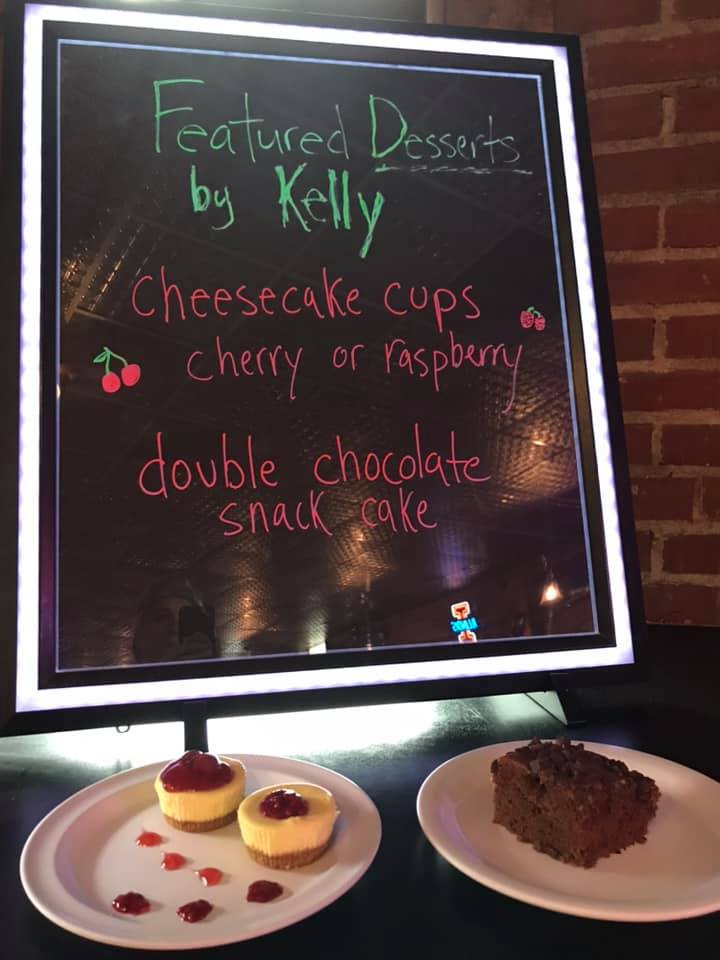 Featured Desserts
by Kelly
cheesecake cups
cherry or raspberry
double chocolate
snack cake